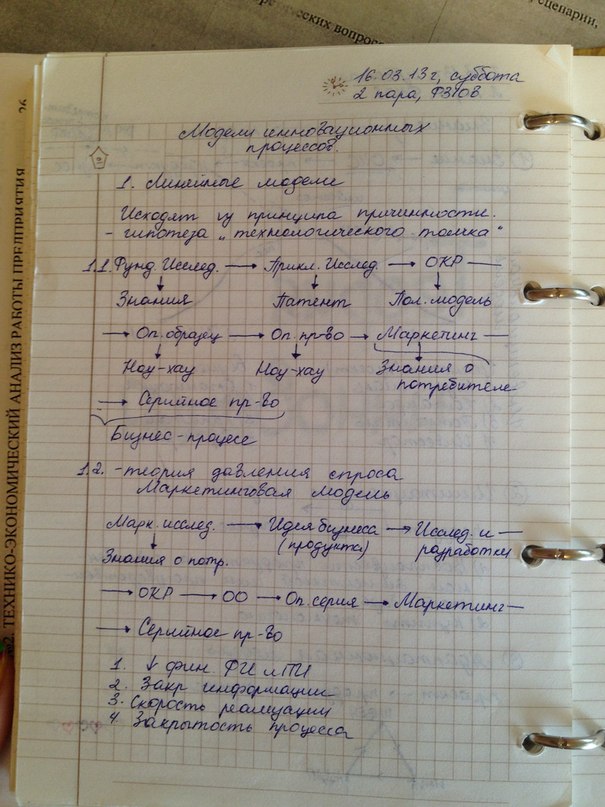 ческих вопрос
сценарии,
26
№2. ТЕХНИКО-ЭКОНОМИЧЕСКИЙ АНАЛИЗ РАБОТЫ ПРЕДПРИЯТИЯ
16.03.13г, суббота
2 пара, ФЭЮВ
Модели инновационных
процессов.
1. Линейные модели
Исходят из принципа причинности.
- гипотеза „технологического толчка"
1.1. Фунд. Исслед. → Прикл. Исслед. → ОКР —
↓ Знания ↓ Патент ↓ Пол. модель
→ Оп. образец → Оп. пр-во → Маркетинг —
↓ Ноу-хау ↓ Ноу-хау ↓ Знания о
потребителе
→ Серийное пр-во
Бизнес-процесс
1.2. - теория давления спроса
Маркетинговая модель
Марк. исслед. → Идея бизнеса → Исслед. и —
(продукта) разработки
↓ Знания о потр.
→ ОКР → ОО → Оп. серия → Маркетинг —
→ Серийное пр-во
1. ↓ фин. ФИ и ПИ
2. Закр информации
3. Скорость реализации
4. Закрытость процесса